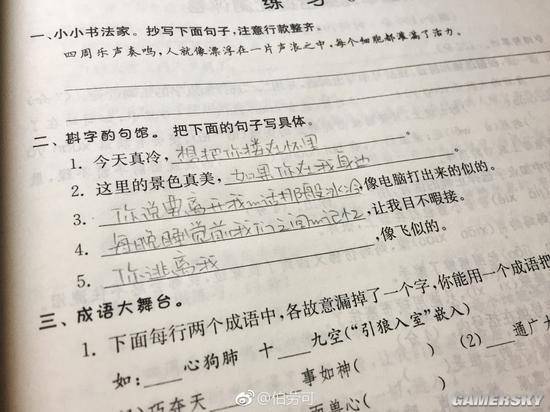 练习
一、小小书法家。抄写下面句子，注意行款整齐。
四周乐声奏鸣，人就像漂浮在一片声浪之中，每个细胞都灌满了活力。
二、斟字酌句馆。 把下面的句子写具体。
1. 今天真冷，想把你搂在怀里。
2. 这里的景色真美，如果你在我身边。
3. 你说要离开我的话那般冰冷，像电脑打出来的似的。
4. 每晚睡觉前我们之间的记忆，让我目不暇接。
5. 你逃离我，像飞似的。
三、成语大舞台。
1. 下面每行两个成语中，各故意漏掉了一个字，你能用一个成语把
如：___心狗肺 十___九空(“引狼入室”嵌入)
(1) 巧夺天___ ___事如神( ) (2) ___通广大
面兽心( )
@伯劳可
GAMERSKY